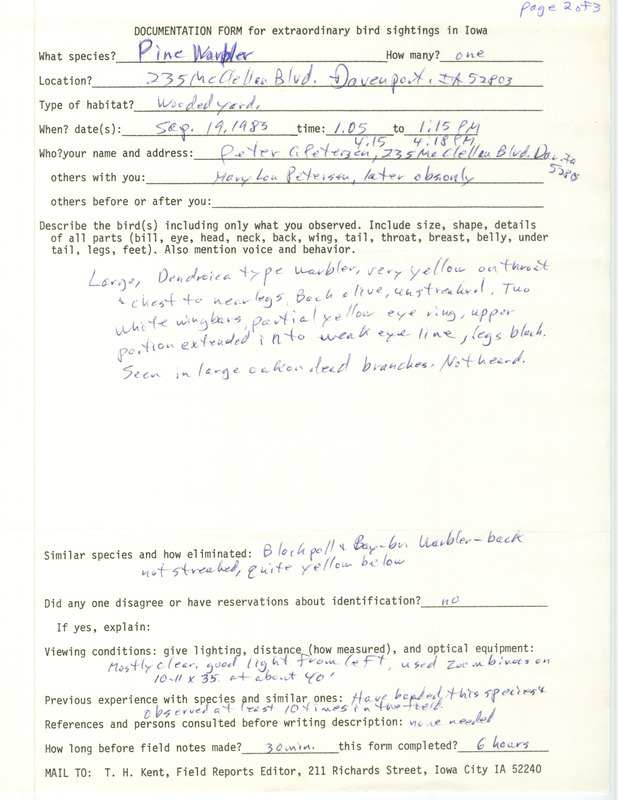 page 2 of 3
DOCUMENTATION FORM for extraordinary bird sightings in Iowa
What species? Pine Warbler How many? one
Location? 235 McClellan Blvd. Davenport, IA 52803
Type of habitat? Wooded yard.
When? date(s): Sep. 19, 1983 time: 1:05 to 1:15 PM
4:15 4:18 PM
Who?your name and address: Peter C. Petersen, 235 McClellan Blvd. Dav. Ia
52803
others with you: Mary Lou Petersen, later obs. only
others before or after you:
Describe the bird(s) including only what you observed. Include size, shape, details
of all parts (bill, eye, head, neck, back, wing, tail, throat, breast, belly, under
tail, legs, feet). Also mention voice and behavior.
Large, Dendroica type warbler, very yellow on throat
& chest to near legs. Back olive, unstreaked. Two
white wingbars, partial yellow eye ring, upper
portion extended into weak eye line, legs black.
Seen in large oak on dead branches. Not heard.
Similar species and how eliminated: Blackpoll & Bay-br. Warbler - back
not streaked, quite yellow below
Did any one disagree or have reservations about identification? no
If yes, explain:
Viewing conditions: give lighting, distance (how measured), and optical equipment:
Mostly clear, good light from left, used Zoom binocs on
10-11 x 35 at about 40'
Previous experience with species and similar ones: Have banded this species &
observed at least 10 times in the field.
References and persons consulted before writing description: none needed
How long before field notes made? 30 min. this form completed? 6 hours
MAIL TO: T. H. Kent, Field Reports Editor, 211 Richards Street, Iowa City IA 52240